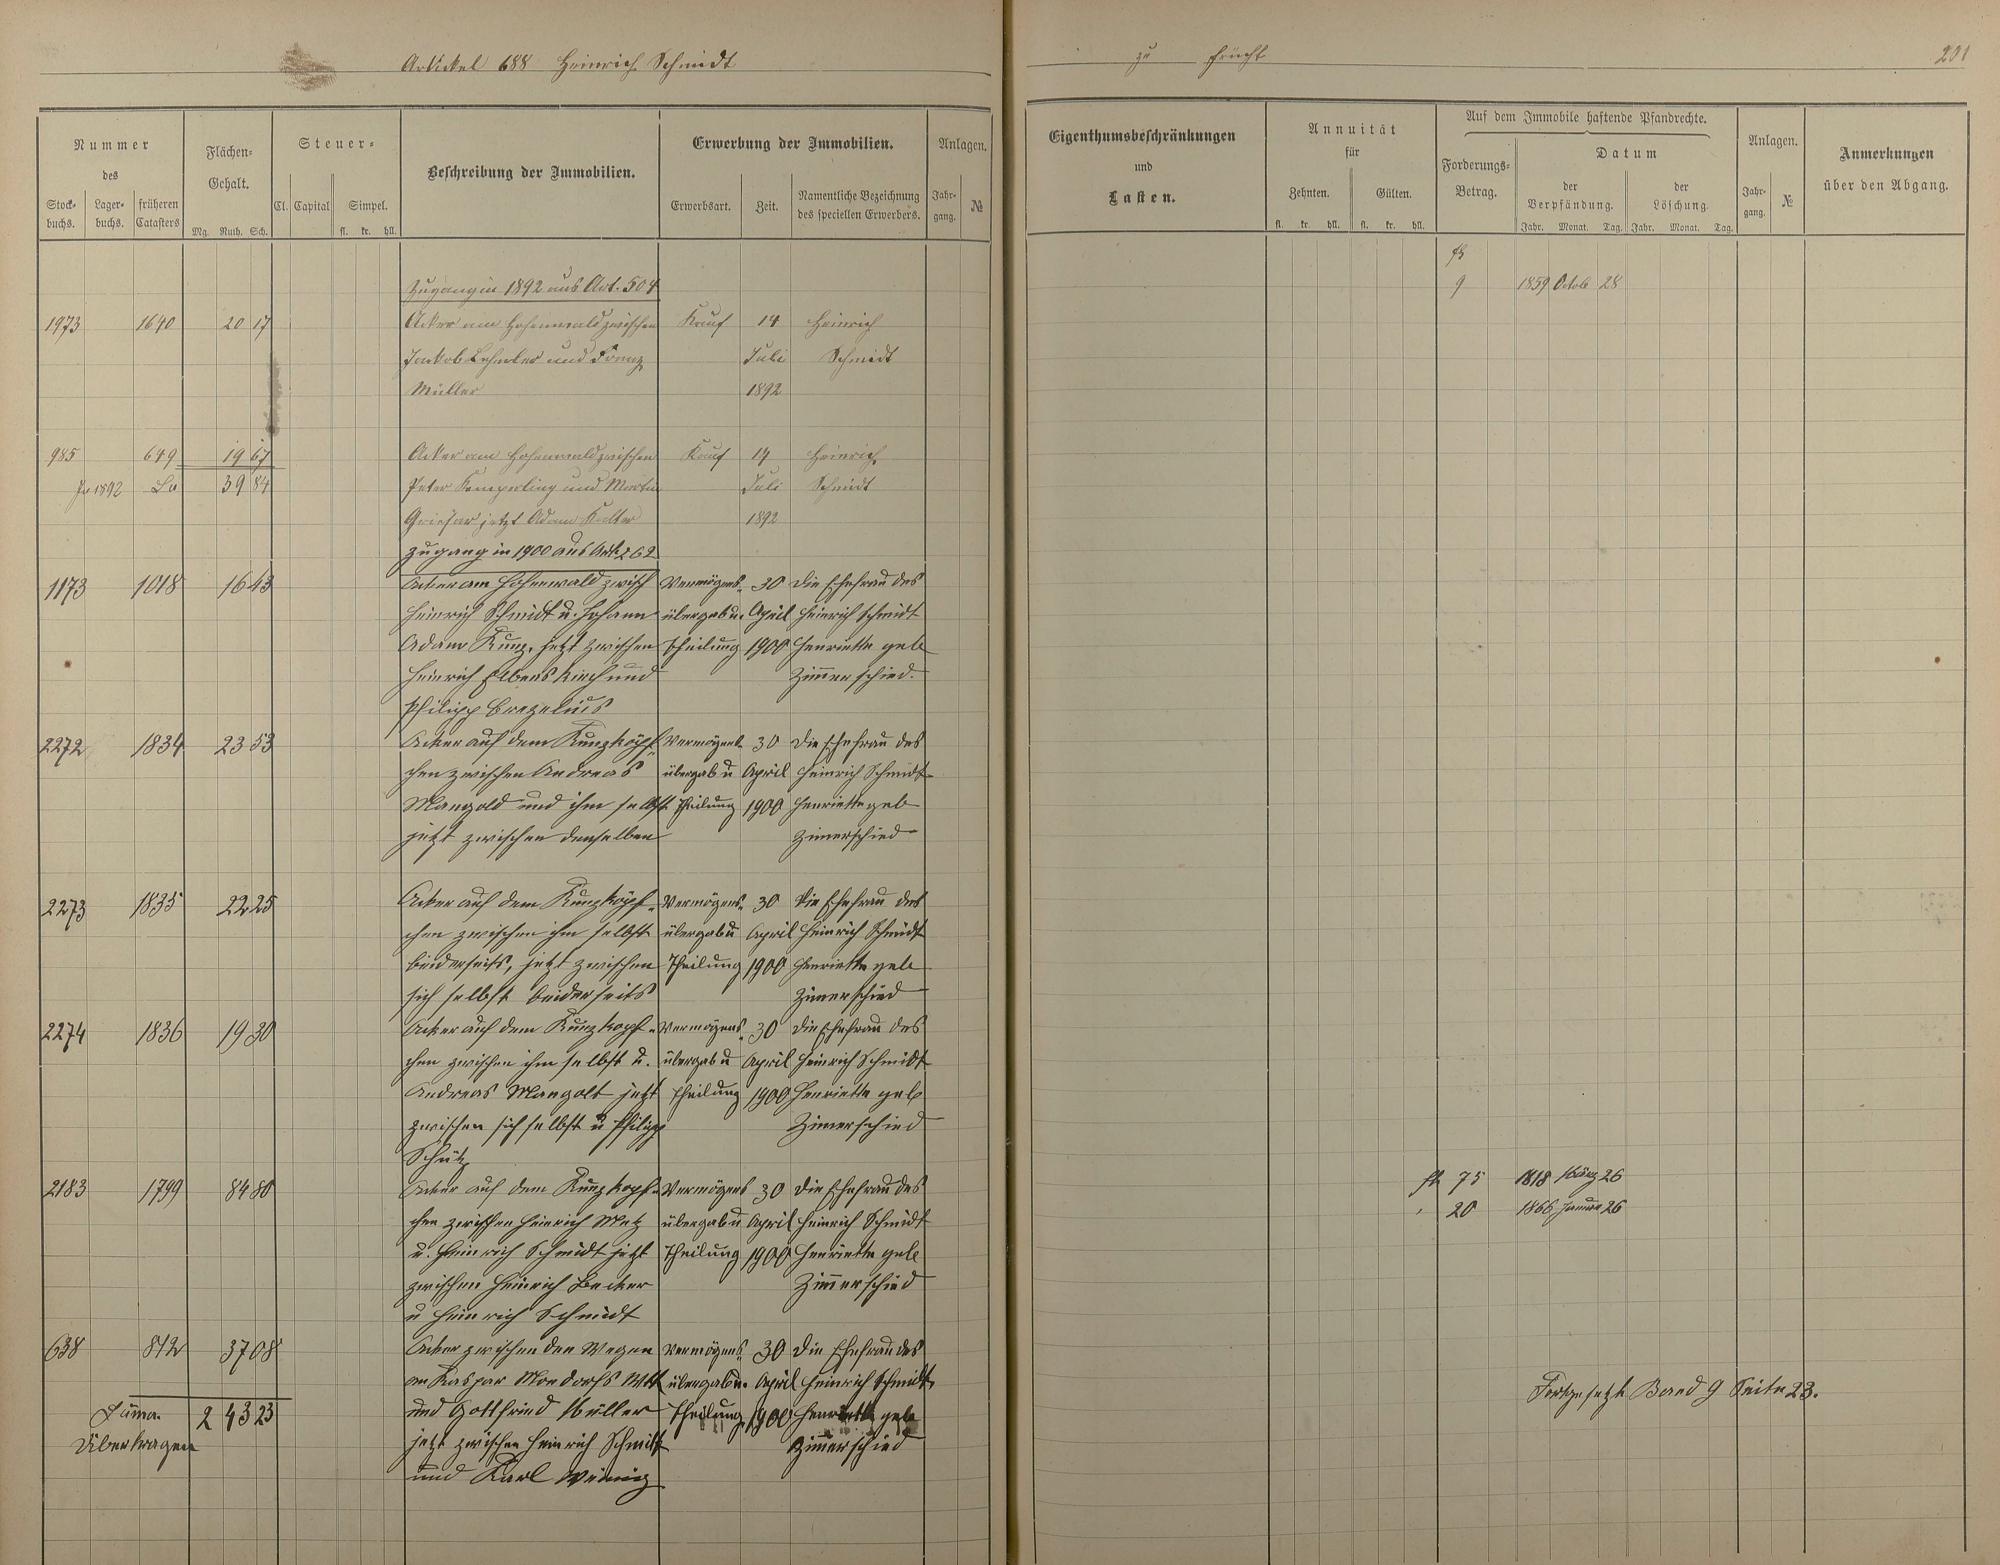 Artickel 688 Heinrich Schmidt
zu Frücht
201
Nummer
des
Stock-
buchs.
Lager-
buchs.
früheren
Catasters
Flächen-
Gehalt.
Mg. Ruth. Sch.
Steuer-
Cl. Capital Simpel.
fl. kr. hll.
Beschreibung der Immobilien.
Erwerbung der Immobilien.
Erwerbsart. Zeit.
Namentliche Bezeichnung
des speciellen Erwerbers.
Anlagen.
Jahr-
gang.
№
Eigenthumsbeschränkungen
und
Lasten.
Annuität
für
Zehnten. Gülten.
fl. kr. hll. fl. kr. hll.
Auf dem Immobile haftende Pfandrechte.
Forderungs-
Betrag.
Datum
der
Verpfändung.
der
Löschung.
Jahr. Monat. Tag. Jahr. Monat. Tag.
Anlagen.
Jahr-
gang.
№
Anmerkungen
über den Abgang.
Zugang in 1892 aus Art. 504
9 1859 Octob 28
1973 1640 20 17 Acker am Hohenwald zwischen Kauf 14 Heinrich
Jackob Lehmler und Franz Juli Schmidt
Müller 1892
985 649 19 67 Acker am Hohenwald zwischen Kauf 14 Heinrich
pr 1892 39 84 Peter Kemperling und Martin Juli Schmidt
jetzt Adam 1892
Zugang in 1900 aus Art. 262
1173 1018 16 43 Acker am Hohenwald zwisch Vermögens- 30 Die Ehefrau des
Heinrich Schmidt u. Johann übergab u. April Heinrich Schmidt
Adam Kunz, jetzt zwischen Theilung 1900 Henriette geb
Heinrich Elbenskirch und Zimmerschied.
Philipp Bregelius
2272 1834 23 53 Acker auf dem Kunzköpf- Vermögens- 30 Die Ehefrau des
chen zwischen Andreas übergab u April Heinrich Schmidt
Mangold und ihm selbst Theilung 1900 Henriette geb
jetzt zwischen denselben Zimerschied
2273 1835 22 25 Acker auf dem Kunzköpf- Vermögens- 30 Die Ehefrau des
chen zwischen ihm selbst übergab u April Heinrich Schmidt
beiderseits, jetzt zwischen Theilung 1900 Henriette geb
sich selbst beiderseits Zimerschied
2274 1836 19 30 Acker auf dem Kunzkopf- Vermögens- 30 Die Ehefrau des
chen zwischen ihm selbst u. übergab u April Heinrich Schmidt
Andreas Mangolt jetzt Theilung 1900 Henriette geb
zwischen sich selbst u Philipp Zimerschied
Schütz
2183 1799 84 80 Acker auf dem Kunzkopf- Vermögens 30 Die Ehefrau des
fl 75 1818 März 26
chen zwischen Heinrich Metz übergab u April Heinrich Schmidt
20 1866 Januar 26
u. Heinrich Schmidt jetzt Theilung 1900 Henriette geb
zwischen Heinrich Becker Zimmerschied
u Heinrich Schmidt
638 842 37 08 Acker zwischen den Wegen Vermögens- 30 Die Ehefrau des
an Kaspar Mondorfs Wtt übergab u. April Heinrich Schmidt
Fortgesetzt Band 9 Seite 23.
Suma. 2 43 23 und Gottfried Müller Theilung 1900 Henriette geb
Übertragen jetzt zwischen Heinrich Schmidt Zimmerschied
und Karl